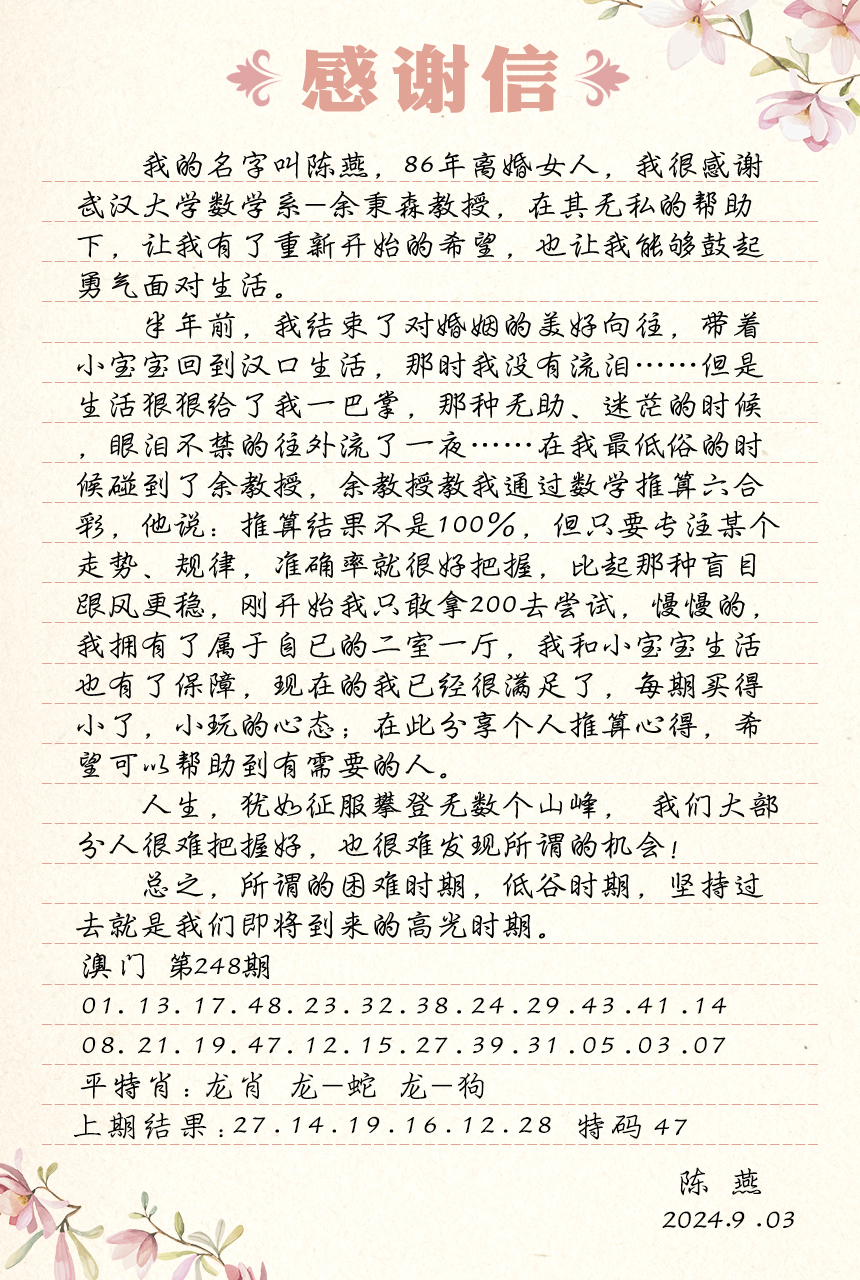 感谢信
我的名字叫陈燕，86年离婚女人，我很感谢
武汉大学数学系—余秉森教授，在其无私的帮助
下，让我有了重新开始的希望，也让我能够鼓起
勇气面对生活。
半年前，我结束了对婚姻的美好向往，带着
小宝宝回到汉口生活，那时我没有流泪……但是
生活狠狠给了我一巴掌，那种无助、迷茫的时候
，眼泪不禁的往外流了一夜……在我最低俗的时
候碰到了余教授，余教授教我通过数学推算六合
彩，他说：推算结果不是100%，但只要专注某个
走势、规律，准确率就很好把握，比起那种盲目
跟风更稳，刚开始我只敢拿200去尝试，慢慢的，
我拥有了属于自已的二室一厅，我和小宝宝生活
也有了保障，现在的我已经很满足了，每期买得
小了，小玩的心态；在此分享个人推算心得，希
望可以帮助到有需要的人。
人生，犹如征服攀登无数个山峰， 我们大部
分人很难把握好，也很难发现所谓的机会！
总之，所谓的困难时期，低谷时期，坚持过
去就是我们即将到来的高光时期。
澳门 第248期
01.13.17.48.23.32.38.24.29.43.41.14
08.21.19.47.12.15.27.39.31.05.03.07
平特肖：龙肖 龙—蛇 龙—狗
上期结果：27.14.19.16.12.28 特码 47
陈 燕
2024.9.03